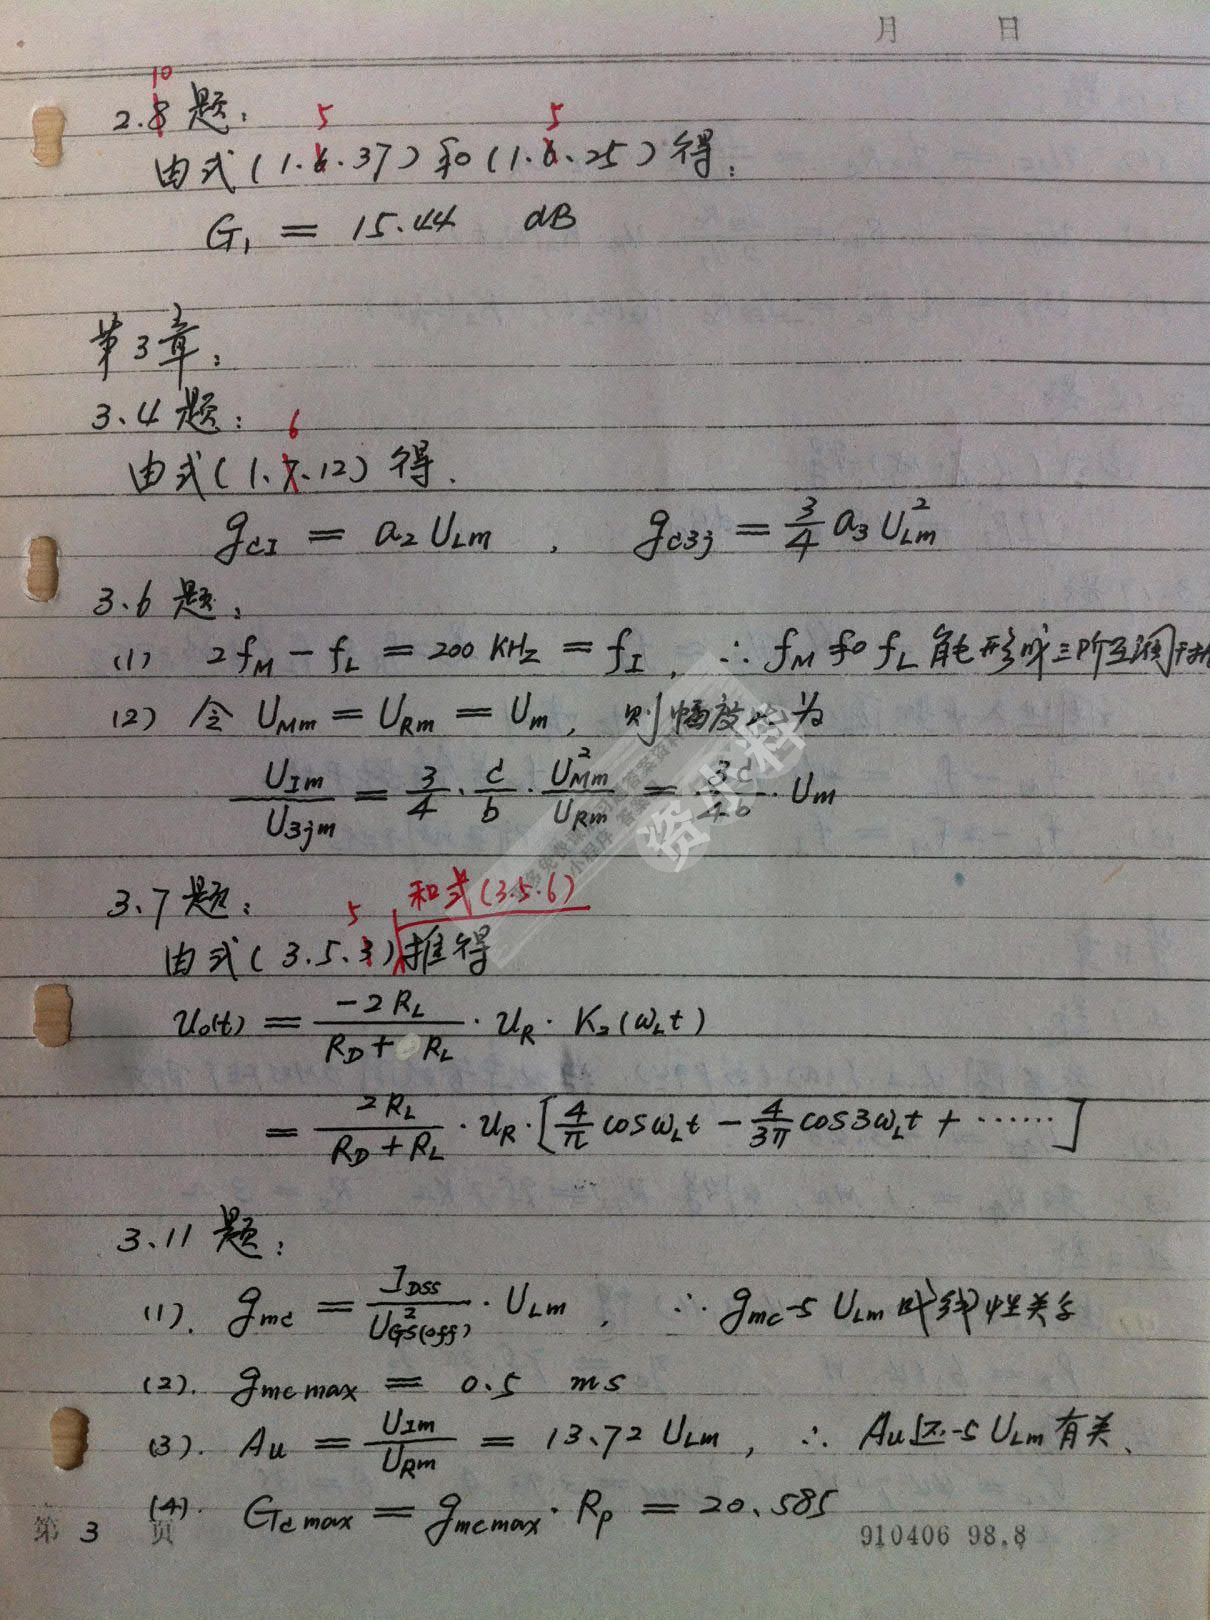 月 日
10
2.8 题:
5 5
由式(1.6.37)和(1.6.25)得:
G₁ = 15.44 dB
第3章:
3.4 题:
6
由式(1.7.12)得.
g_cI = a₂ U_Lm , g_c3j = 3/4 a₃ U²_Lm
3.6 题:
(1) 2f_M - f_L = 200 KHz = f_I , ∴ f_M 和 f_L 能形成三阶互调干扰
(2) 令 U_Mm = U_Rm = U_m , 则幅度比为
U_Im / U_3jm = 3/4 · c/b · U²_Mm / U_Rm = 3c/4b · U_m
资料
小程序
3.7 题:
5 和式(3.5.6)
由式(3.5.3)推得
u₀(t) = -2R_L / (R_D + R_L) · u_R · K₂(ω_L t)
= 2R_L / (R_D + R_L) · u_R · [4/π cosω_L t - 4/3π cos3ω_L t + ……]
3.11 题:
(1). g_mc = I_DSS / U²_GS(off) · U_Lm , ∴ g_mc与 U_Lm 成线性关系
(2). g_mcmax = 0.5 ms
(3). Au = U_Im / U_Rm = 13.72 U_Lm , ∴ Au还与 U_Lm 有关.
(4). G_cmax = g_mcmax · R_p = 20.585
第 3 页 910406 98.8